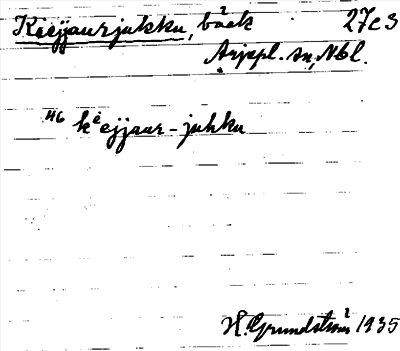 Kiejjaurjukku, bäck 27c3
Arjepl. sn, Nbl.
46 kⁱejjaur-juhku
H. Grundström 1935